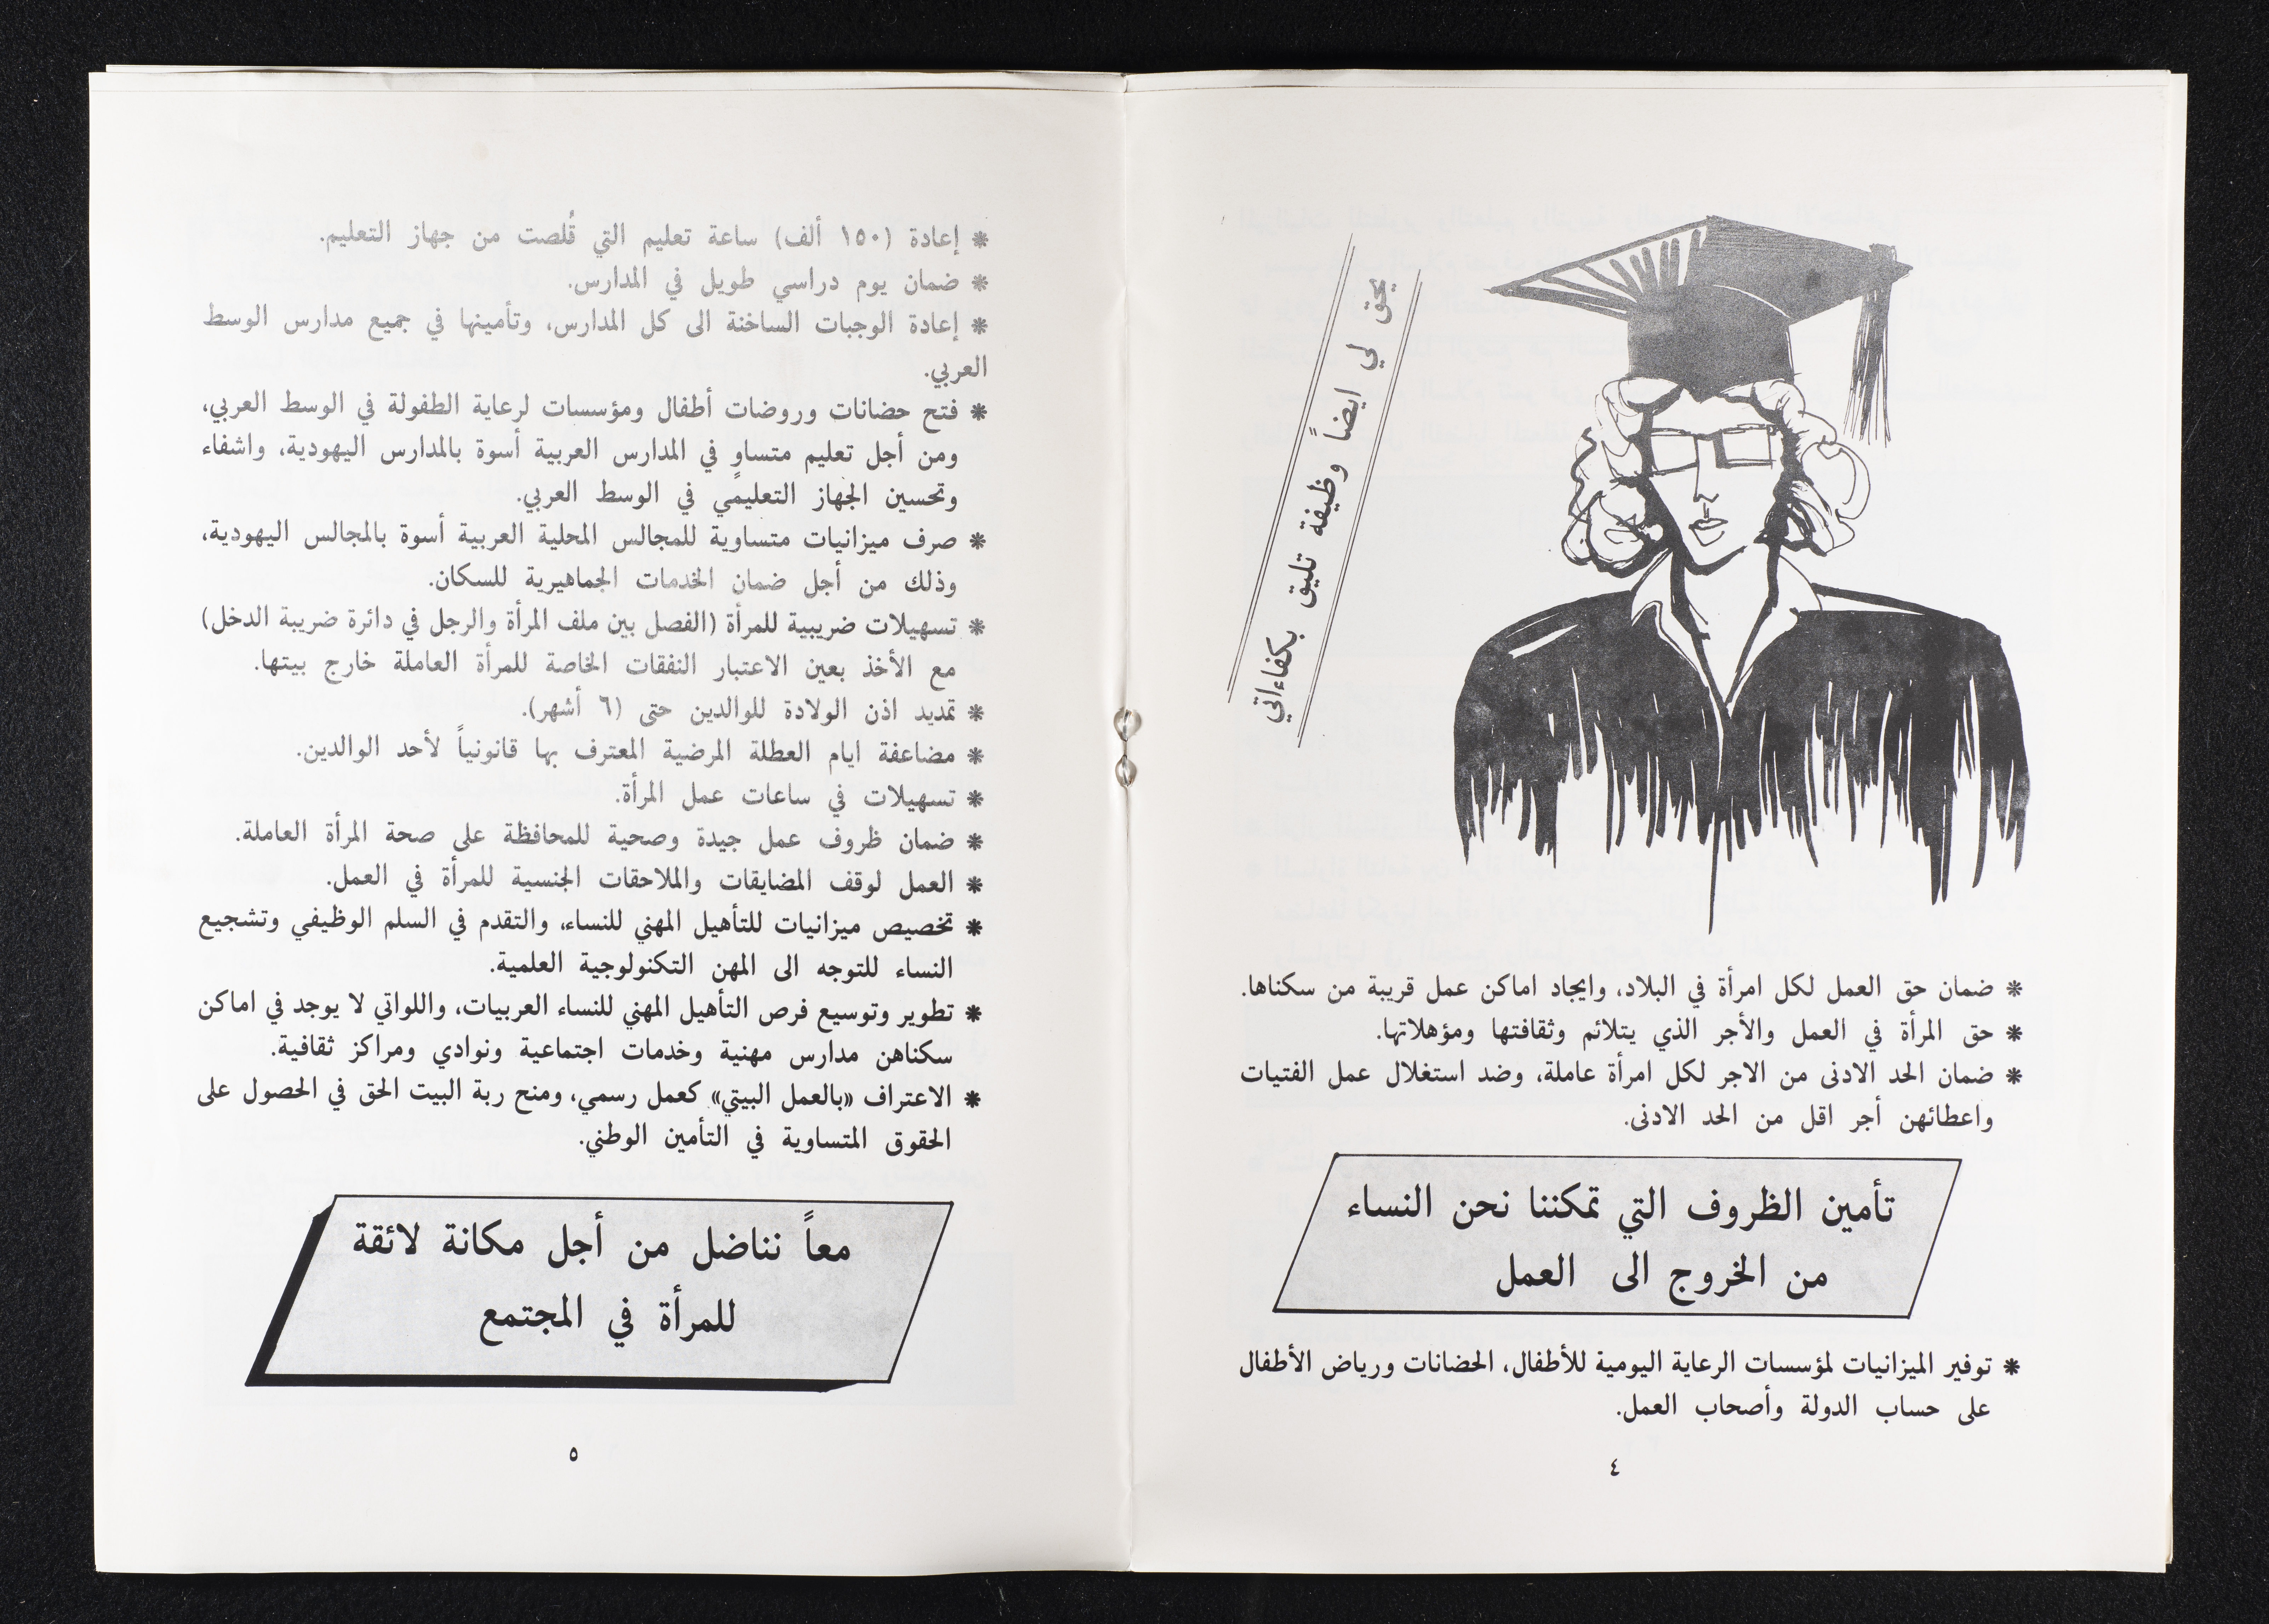 يحق لي ايضاً وظيفة تليق بكفاءاتي
* ضمان حق العمل لكل امرأة في البلاد، وايجاد اماكن عمل قريبة من سكناها.
* حق المرأة في العمل والأجر الذي يتلائم وثقافتها ومؤهلاتها.
* ضمان الحد الادنى من الاجر لكل امرأة عاملة، وضد استغلال عمل الفتيات
واعطائهن أجر اقل من الحد الادنى.
تأمين الظروف التي تمكننا نحن النساء
من الخروج الى العمل
* توفير الميزانيات لمؤسسات الرعاية اليومية للأطفال، الحضانات ورياض الأطفال
على حساب الدولة وأصحاب العمل.
٤
* إعادة (١٥٠ ألف) ساعة تعليم التي قُلصت من جهاز التعليم.
* ضمان يوم دراسي طويل في المدارس.
* إعادة الوجبات الساخنة الى كل المدارس، وتأمينها في جميع مدارس الوسط
العربي.
* فتح حضانات وروضات أطفال ومؤسسات لرعاية الطفولة في الوسط العربي،
ومن أجل تعليم متساوٍ في المدارس العربية أسوة بالمدارس اليهودية، واشفاء
وتحسين الجهاز التعليمي في الوسط العربي.
* صرف ميزانيات متساوية للمجالس المحلية العربية أسوة بالمجالس اليهودية،
وذلك من أجل ضمان الخدمات الجماهيرية للسكان.
* تسهيلات ضريبية للمرأة (الفصل بين ملف المرأة والرجل في دائرة ضريبة الدخل)
مع الأخذ بعين الاعتبار النفقات الخاصة للمرأة العاملة خارج بيتها.
* تمديد اذن الولادة للوالدين حتى (٦ أشهر).
* مضاعفة ايام العطلة المرضية المعترف بها قانونياً لأحد الوالدين.
* تسهيلات في ساعات عمل المرأة.
* ضمان ظروف عمل جيدة وصحية للمحافظة على صحة المرأة العاملة.
* العمل لوقف المضايقات والملاحقات الجنسية للمرأة في العمل.
* تخصيص ميزانيات للتأهيل المهني للنساء، والتقدم في السلم الوظيفي وتشجيع
النساء للتوجه الى المهن التكنولوجية العلمية.
* تطوير وتوسيع فرص التأهيل المهني للنساء العربيات، واللواتي لا يوجد في اماكن
سكناهن مدارس مهنية وخدمات اجتماعية ونوادي ومراكز ثقافية.
* الاعتراف «بالعمل البيتي» كعمل رسمي، ومنح ربة البيت الحق في الحصول على
الحقوق المتساوية في التأمين الوطني.
معاً نناضل من أجل مكانة لائقة
للمرأة في المجتمع
٥